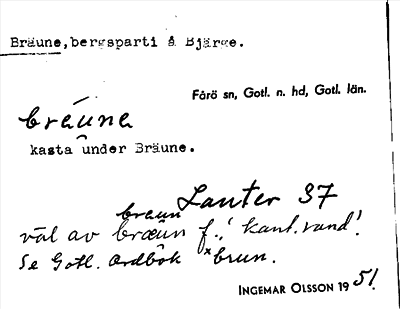 Bräune, bergsparti å Bjärge.
Fårö sn, Gotl. n. hd, Gotl. län.
bräuna
kasta under Bräune.
Lauter 37
braun
väl av bräun f. 'kant, rand'.
Se Gotl. ordbok *brun.
INGEMAR OLSSON 1951.